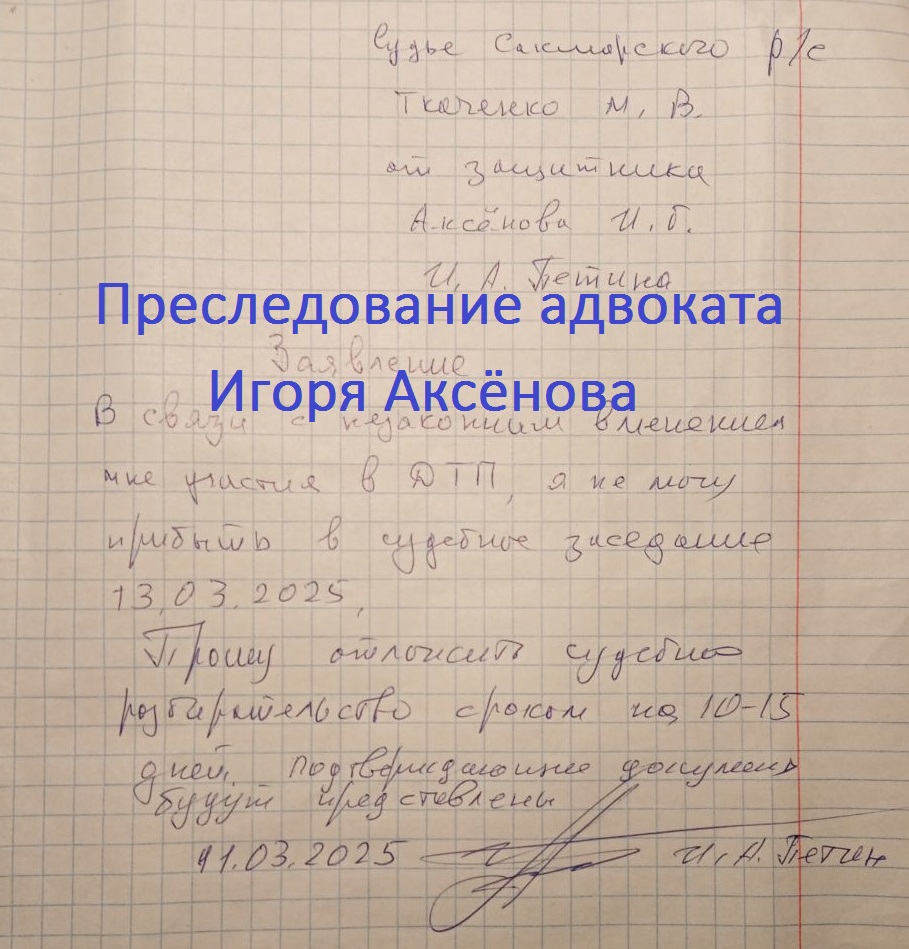 Судье Сакмарского р/с
Ткаченко М. В.
от защитника
Аксёнова И. Б.
И. А. Петина
Преследование адвоката
Заявление
Игоря Аксёнова
В связи с незаконным вменением
мне участия в ДТП, я не могу
прибыть в судебное заседание
13.03.2025,
Прошу отложить судебно
разбирательство сроком на 10-15
дней, подтверждающие документы
будут представлены
11.03.2025 И. А. Петин